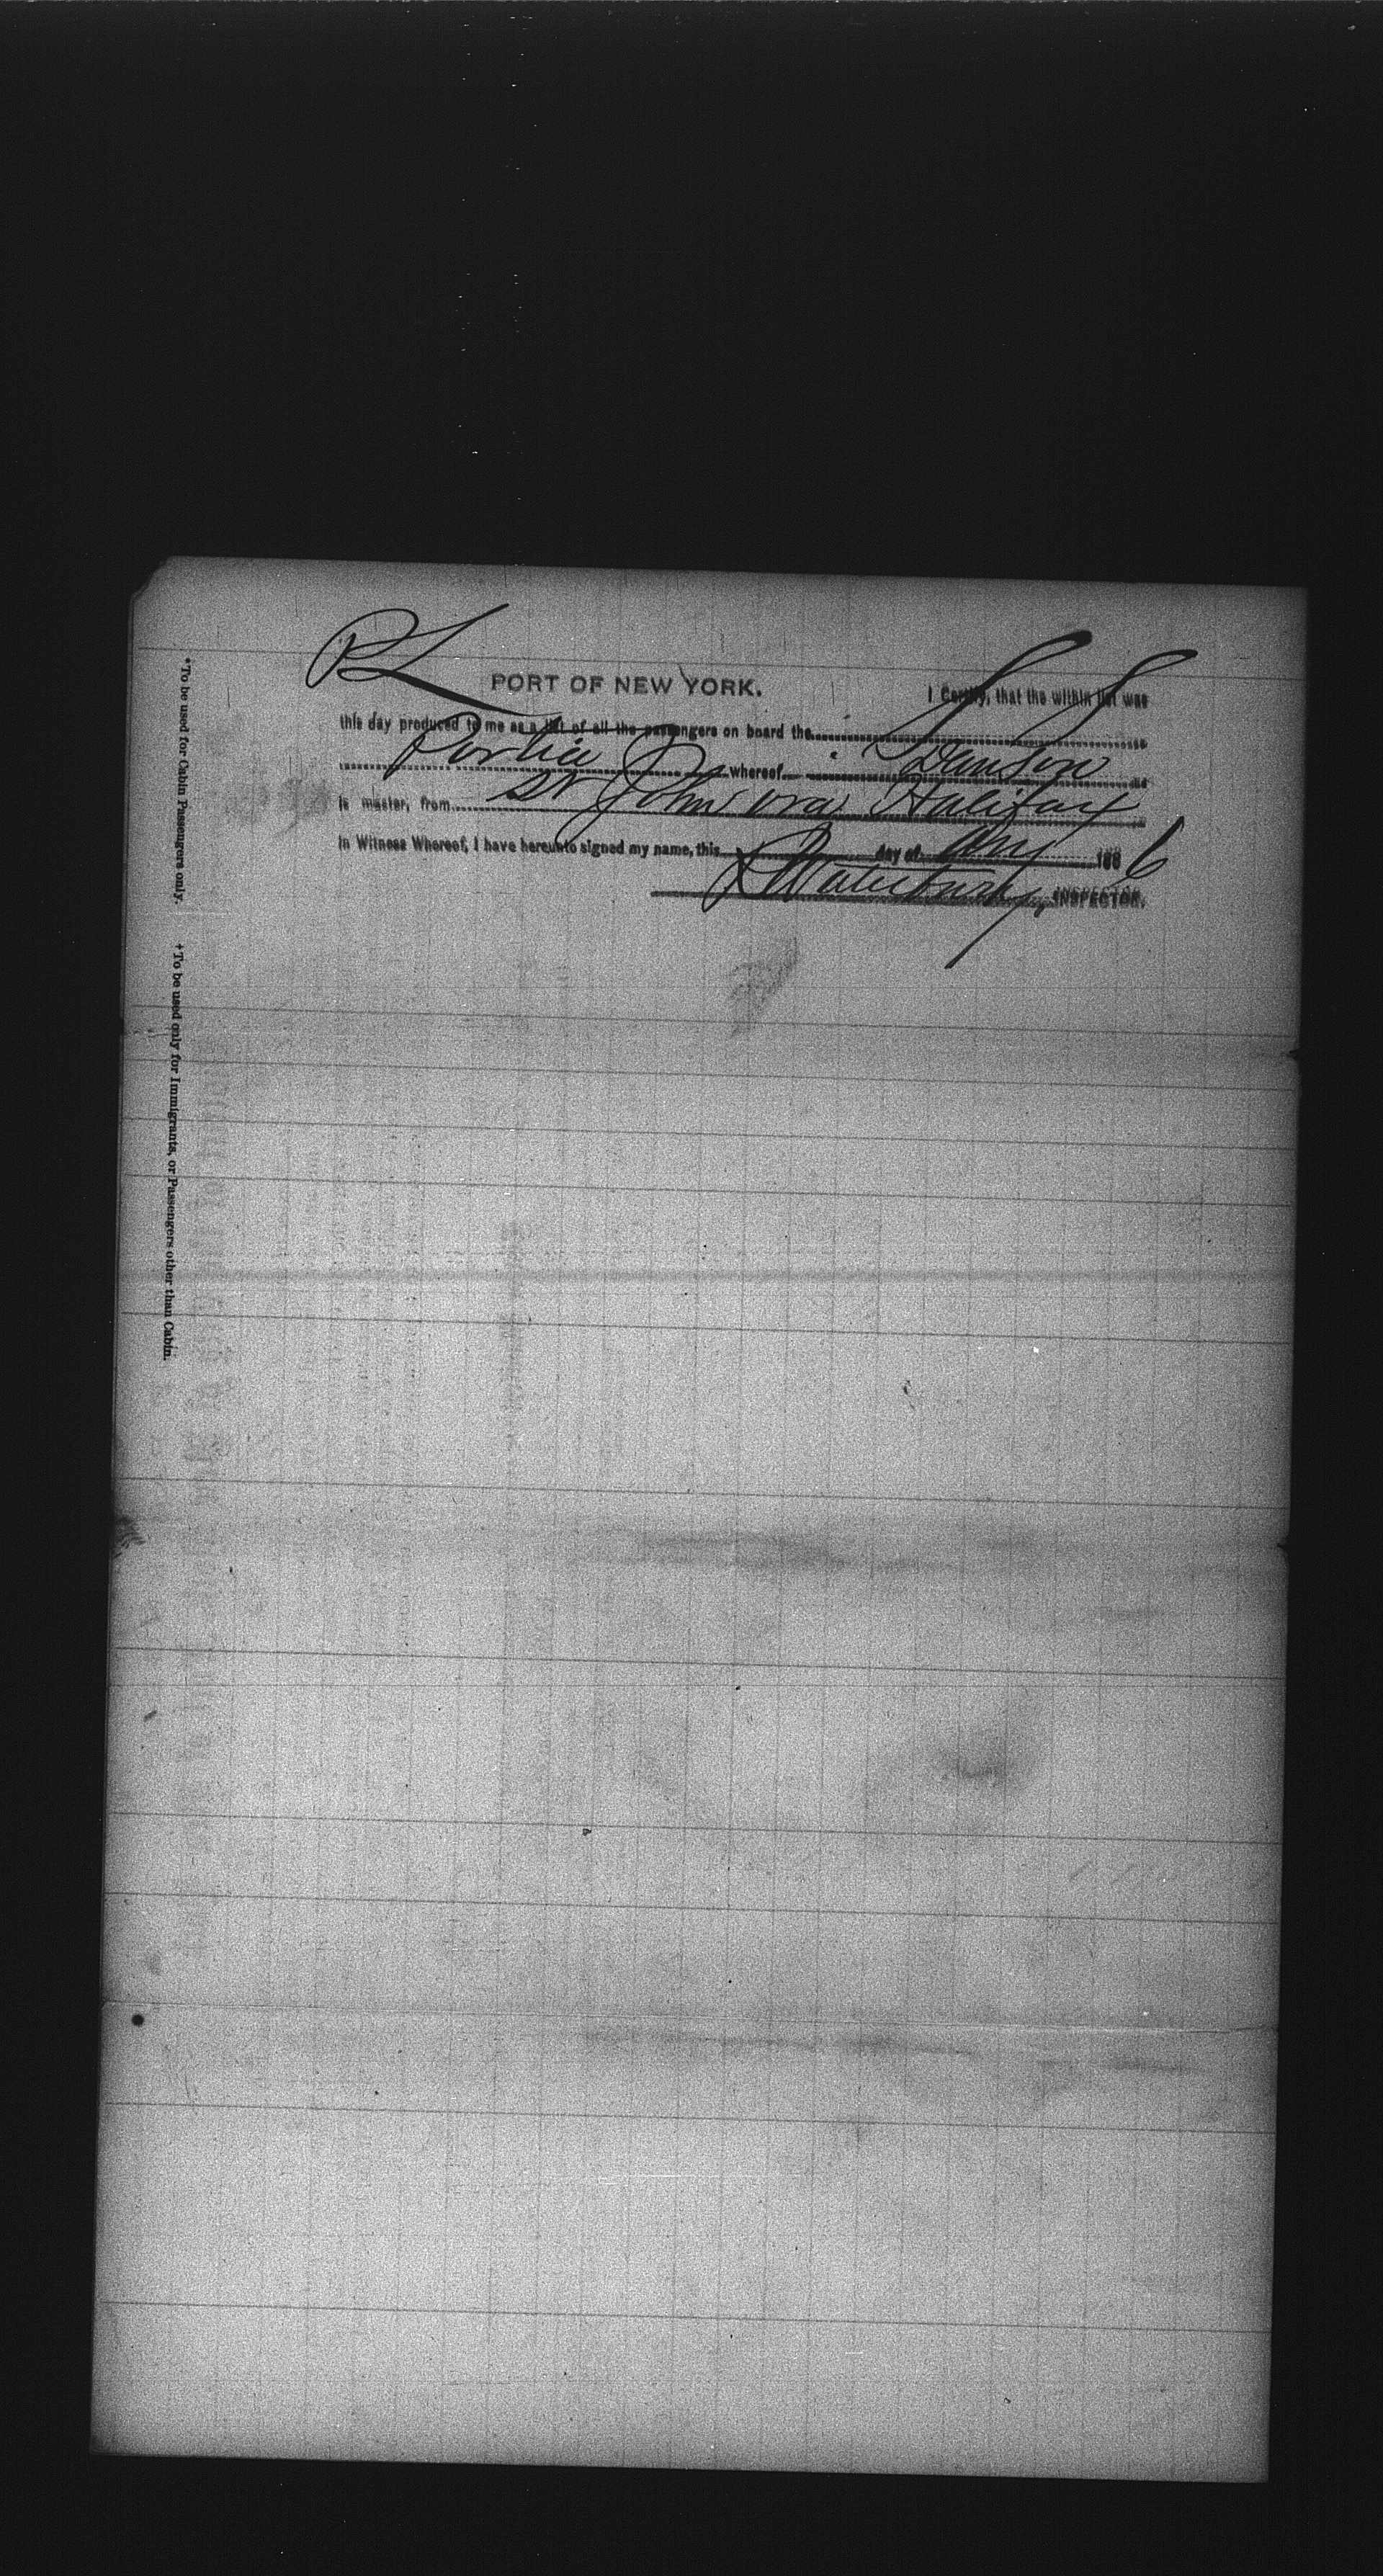 PORT OF NEW YORK. I Certify, that the within list was
this day produced to me as a list of all the passengers on board the S S
Portia whereof Dawson
is master, from St Johns via Halifax
In Witness Whereof, I have hereunto signed my name, this day of 1886
Waterbury, INSPECTOR.
*To be used for Cabin Passengers only.
+To be used only for Immigrants, or Passengers other than Cabin.